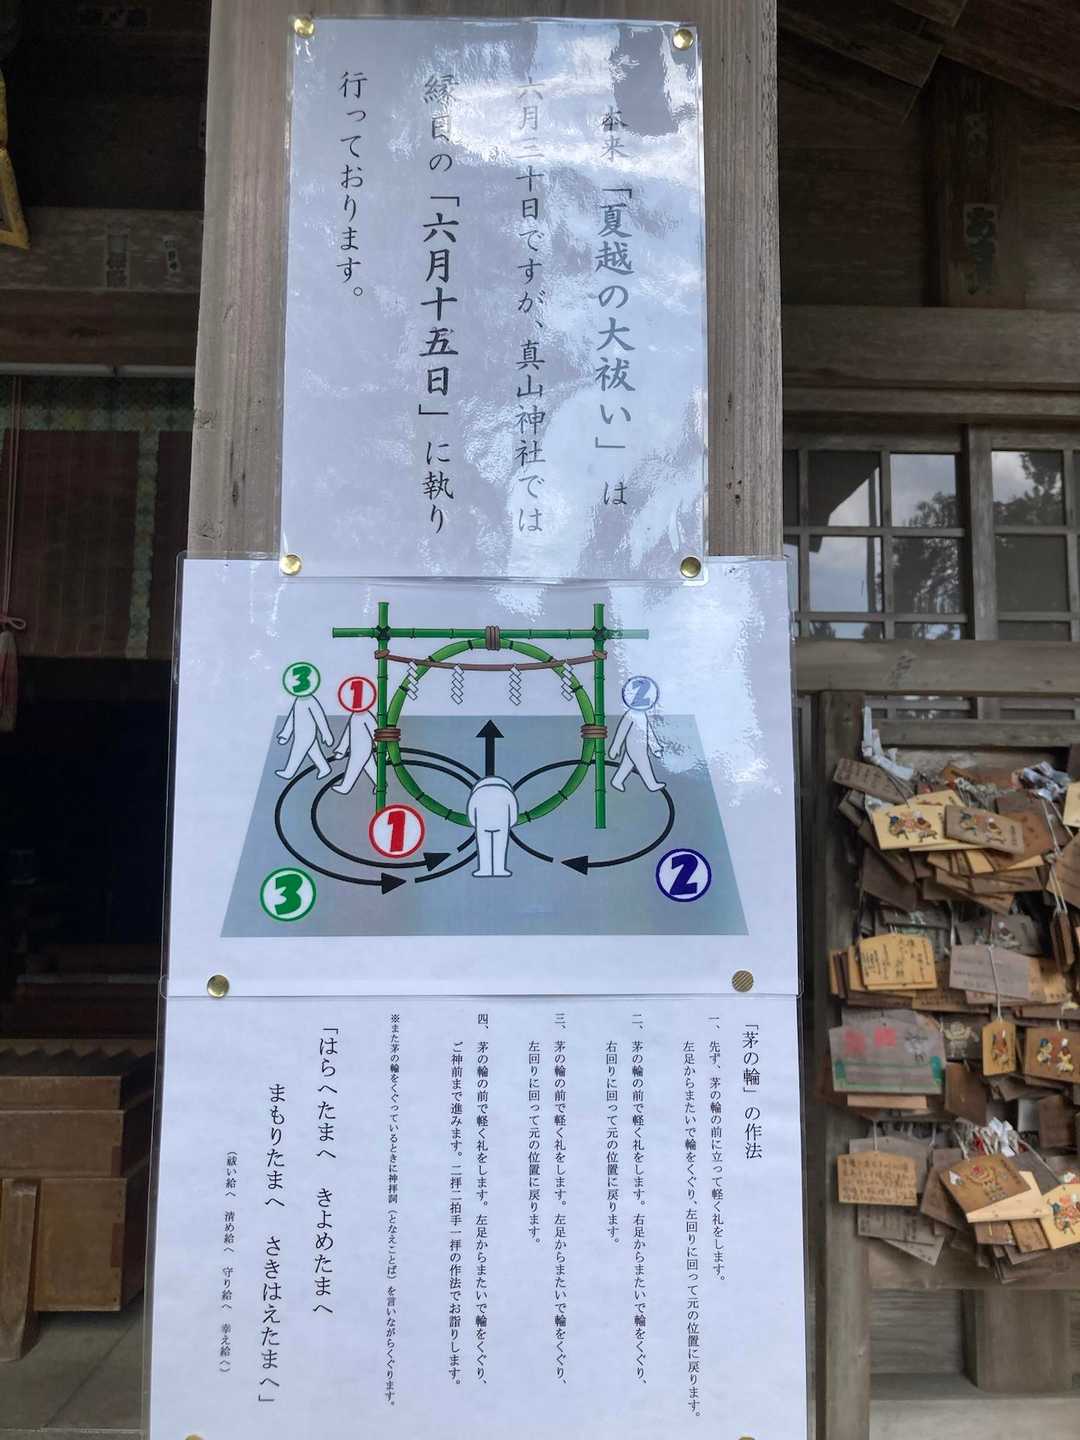 本来「夏越の大祓い」は
六月三十日ですが、真山神社では
縁日の「六月十五日」に執り
行っております。
3
1
2
1
2
3
「茅の輪」の作法
一、先ず、茅の輪の前に立って軽く礼をします。
左足からまたいで輪をくぐり、左回りに回って元の位置に戻ります。
二、茅の輪の前で軽く礼をします。右足からまたいで輪をくぐり、
右回りに回って元の位置に戻ります。
三、茅の輪の前で軽く礼をします。左足からまたいで輪をくぐり、
左回りに回って元の位置に戻ります。
四、茅の輪の前で軽く礼をします。左足からまたいで輪をくぐり、
ご神前まで進みます。二拝二拍手一拝の作法でお詣りします。
※また茅の輪をくぐっているときに神拝詞（となえことば）を言いながらくぐります。
「はらへたまへ　きよめたまへ
まもりたまへ　さきはえたまへ」
（祓い給へ　清め給へ　守り給へ　幸え給へ）